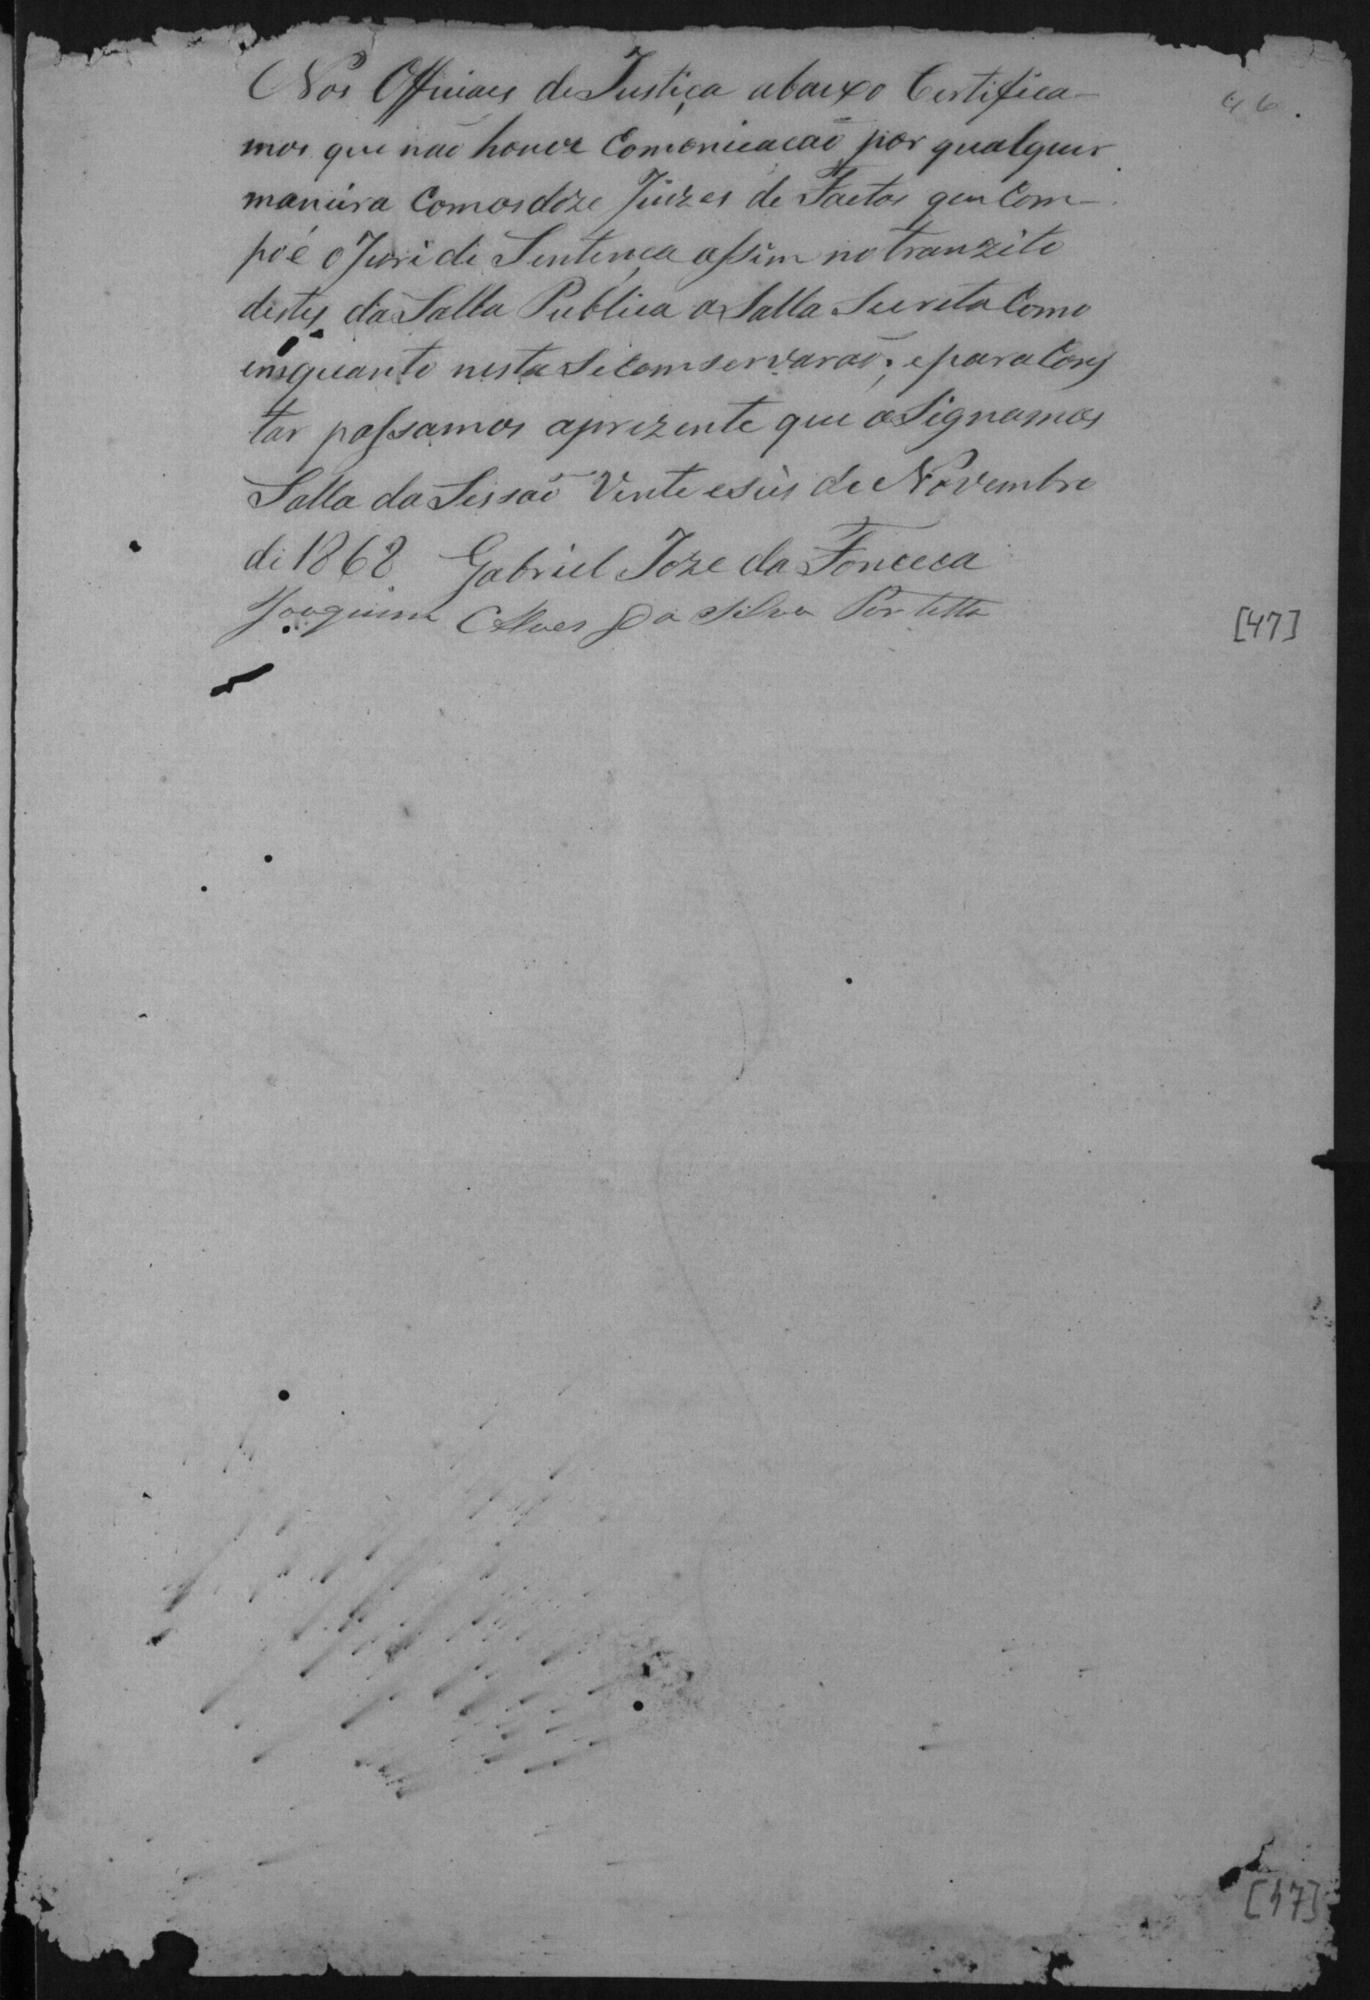 Nos Officiaes de Justiça abaixo Certifica-
46.
mos que não houve Comonicacaõ por qualquer
maneira Com os doze Juizes de Factos que Com-
poê o Juri de Sentença assim no tranzito
destes da Salla Publica a Salla Secreta Como
emquanto nesta se Comservaraõ; e para Cons
tar passamos a prezente que asignamos
Salla da Sessaõ Vente e seis de Novembro
de 1868 Gabriel Joze da Fonceca
Joaquim Alves Da Silva Portella
[47]
[47]